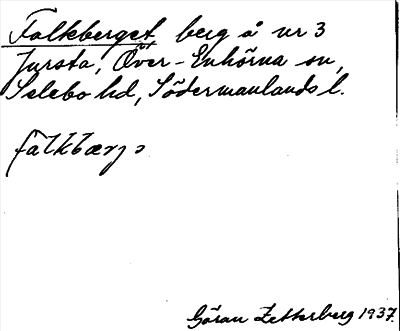 Falkberget, berg å nr 3
Jursta, Över-Enhörna sn,
Selebo hd, Södermanlands l.
Göran Zetterberg 1937.